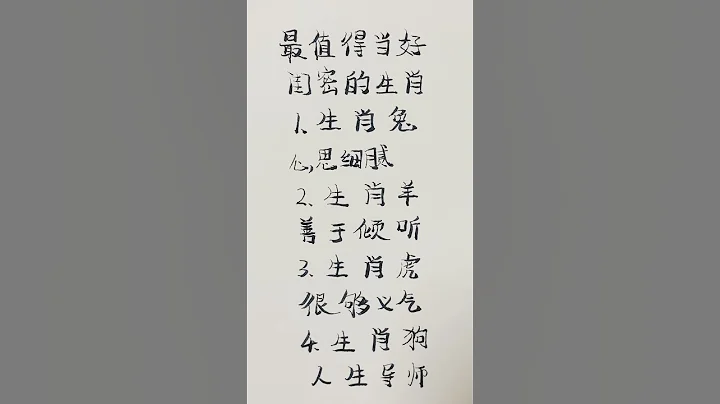 最值得当好
闺密的生肖
1、生肖兔
心思细腻
2、生肖羊
善于倾听
3、生肖虎
很够义气
4、生肖狗
人生导师